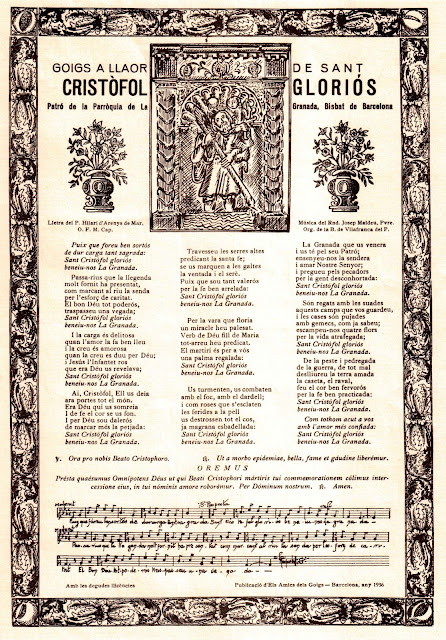 GOIGS A LLAOR DE SANT
CRISTÒFOL GLORIÓS
Patró de la Parròquia de La Granada, Bisbat de Barcelona
Lletra del P. Hilari d'Arenys de Mar.
O. F. M. Cap.
Música del Rnd. Josep Maideu, Pvre.
Org. de la B. de Vilafranca del P.
Puix que foreu ben sortós
de dur carga tant sagrada:
Sant Cristòfol gloriós
beneiu-nos La Granada.
Passa-rius que la llegenda
molt fornit ha presentat,
com marcant al riu la senda
per l'esforç de caritat.
El bon Déu tot poderós,
traspasseu una vegada;
Sant Cristòfol gloriós
beneiu-nos La Granada.
I la carga és delitosa
quan l'amor la fa ben lleu
i la creu és amorosa
quan la creu es duu per Déu;
i Jesús l'Infantet ros
que era Déu us revelava;
Sant Cristòfol gloriós
beneiu-nos La Granada.
Ai, Cristòfol, Ell us deia
ara portes tot el món.
Era Déu qui us somreia
i de fe el cor se us fon.
I per Déu sou dalerós
de marcar més la petjada:
Sant Cristòfol gloriós
beneiu-nos La Granada.
Travesseu les serres altes
predicant la santa fe;
se us marquen a les galtes
la ventada i el seré.
Puix que sou tant valerós
per la fe ben arrelada:
Sant Cristòfol gloriós
beneiu-nos La Granada.
Per la vara que floria
un miracle heu palesat.
Verb de Déu fill de Maria
tot-arreu heu predicat.
El martiri és per a vós
una palma regalada:
Sant Cristòfol gloriós
beneiu-nos La Granada.
Us turmenten, us combaten
amb el foc, amb el dardell;
i com roses que s'esclaten
les ferides a la pell
us destrossen tot el cos,
ja magrana esbadellada:
Sant Cristòfol gloriós
beneiu-nos La Granada.
La Granada que us venera
i us té pel seu Patró;
ensenyeu-nos la sendera
i amar Nostre Senyor;
i pregueu pels pecadors
per la gent desconhortada:
Sant Cristòfol gloriós
beneiu-nos La Granada.
Són regats amb les suades
aquests camps que vos guardeu,
i les cases són pujades
amb gemecs, com ja sabeu;
escampeu-nos quatre flors
per la vida atrafegada;
Sant Cristòfol gloriós
beneiu-nos La Granada.
De la pesta i pedregada
de la guerra, de tot mal
deslliureu la terra amada
la caseta, el raval,
feu el cor ben fervorós
per la fe ben practicada:
Sant Cristòfol gloriós
beneiu-nos La Granada.
Com tothom acut a vos
amb l'amor més confiada:
Sant Cristòfol gloriós
beneiu-nos La Granada.
℣. Ora pro nobis Beate Cristophore. ℟. Ut a morbo epidemiae, bella, fame et gladine liberémur.
OREMUS
Présta quaésumus Omnipotens Déus ut qui Beati Cristophori mártiris tui commemorationem cólimus inter-
cessione eius, in tui nóminis amore roborémur. Per Dóminum nostrum. ℟. Amen.
Amb les degudes llicències Publicació d'Els Amics dels Goigs — Barcelona, any 1956